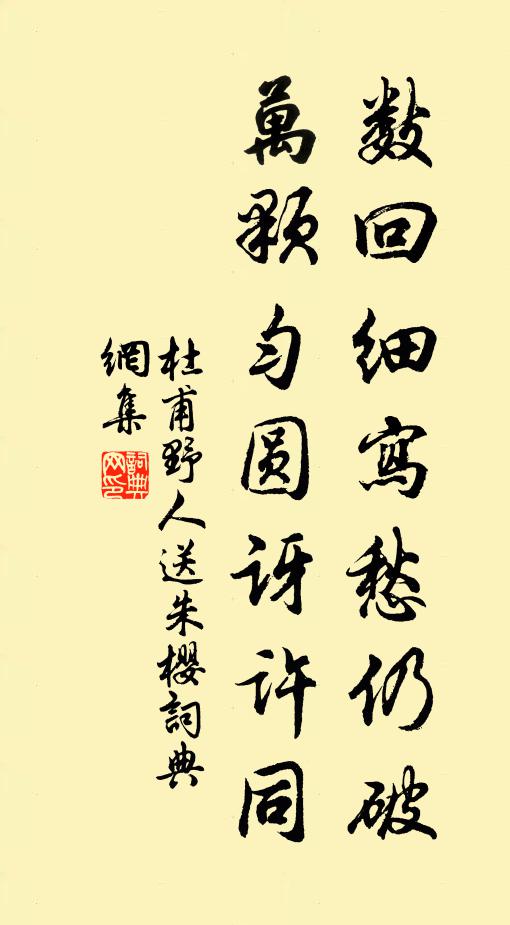 數回細寫愁仍破
萬顆勻圓訝許同
杜甫野人送朱櫻詞典
網集
詞典
网印